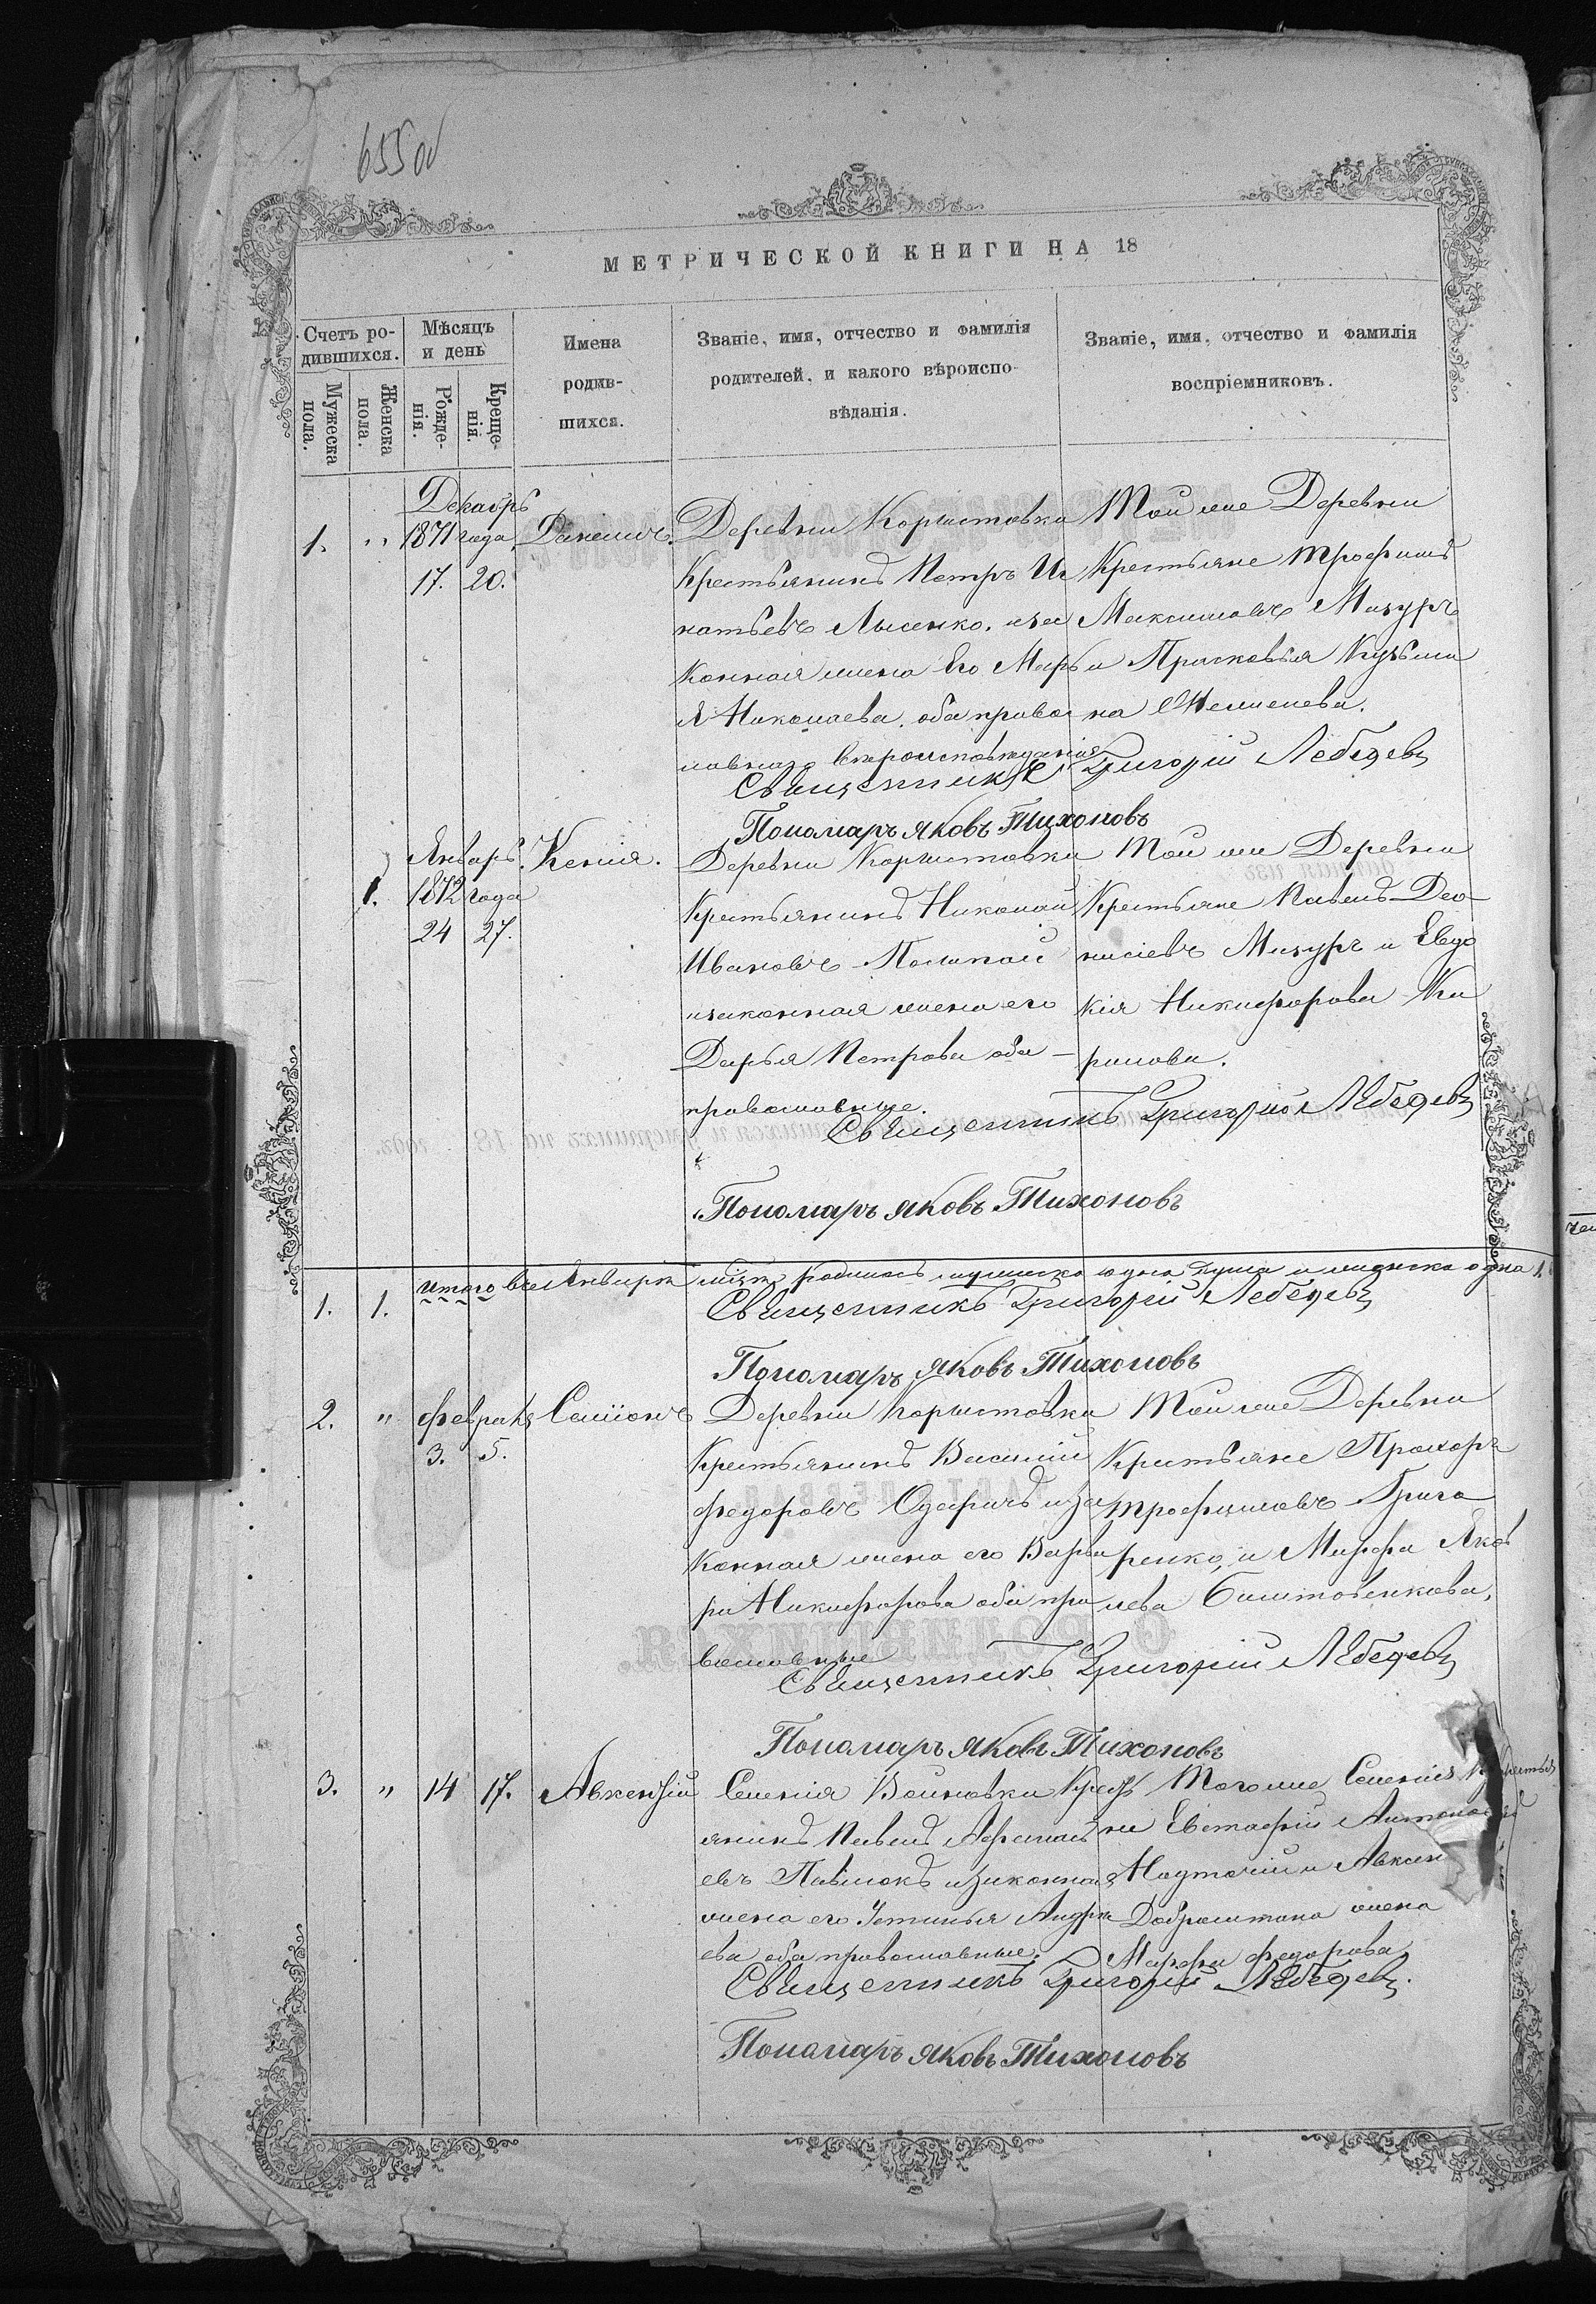 655 об
МЕТРИЧЕСКОЙ КНИГИ НА 18
Счетъ ро-
дившихся.
Мѣсяцъ
и день
Имена
родив-
шихся.
Званіе, имя, отчество и фамилія
родителей, и какого вѣроиспо-
вѣданія.
Званіе, имя, отчество и фамилія
воспріемниковъ.
Мужеска
пола.
Женска
пола.
Рожде-
нія.
Креще-
нія.
Декабрь
1. " 1871 года
17. 20.
Даниилъ.
Деревни Корытовки
Крестьянинъ Петръ Иг
натьевъ Лысенко. иза
конная жена Его Марь
я Николаева. оба правос
лавнаго вероисповѣданія
Той же Деревни
Крестьяне Трофимъ
Максимовъ Мазуръ
и Прасковья Кузьми
на
Священникъ Григорій Лебедевъ
Пономарь Яковъ Тихоновъ
Январь.
1. 1872 года
24 27.
Ксенія.
Деревни Корытовки
Крестьянинъ Николай
Ивановъ
изаконная жена его
Дарья Петрова оба
православные.
Той же Деревни
Крестьяне Павелъ Део-
нисіевъ Мазуръ и Евдо
кія Никифорова Ки
рилова.
Священникъ Григорій Лебедевъ
Пономарь Яковъ Тихоновъ
1. 1. Итого Январѣ родилось мужеска одна душа и женска одна 1.
Священникъ Григорій Лебедевъ
Пономарь Яковъ Тихоновъ
2. " Февраль
3. 5.
Симіонъ
Деревни Корытовки
Крестьянинъ Василий
Федоровъ иза
конная жена его Варва
ра Никифорова оба пра
вославные
Той же Деревни
Крестьяне Прохоръ
Трофимовъ Григо
ренко, и Марфа Яков
лева
Священникъ Григорій Лебедевъ
Пономарь Яковъ Тихоновъ
3. " 14 17. Авксентій
Селенія Войновки Крест
янинъ Павелъ Афанась
евъ Павлюкъ изаконная
жена его Устинья Андре
ева оба православные.
Того же Селенія Крестья
не Евстафій
жена
Марфа Федорова
Священникъ Григорій Лебедевъ.
Пономарь Яковъ Тихоновъ